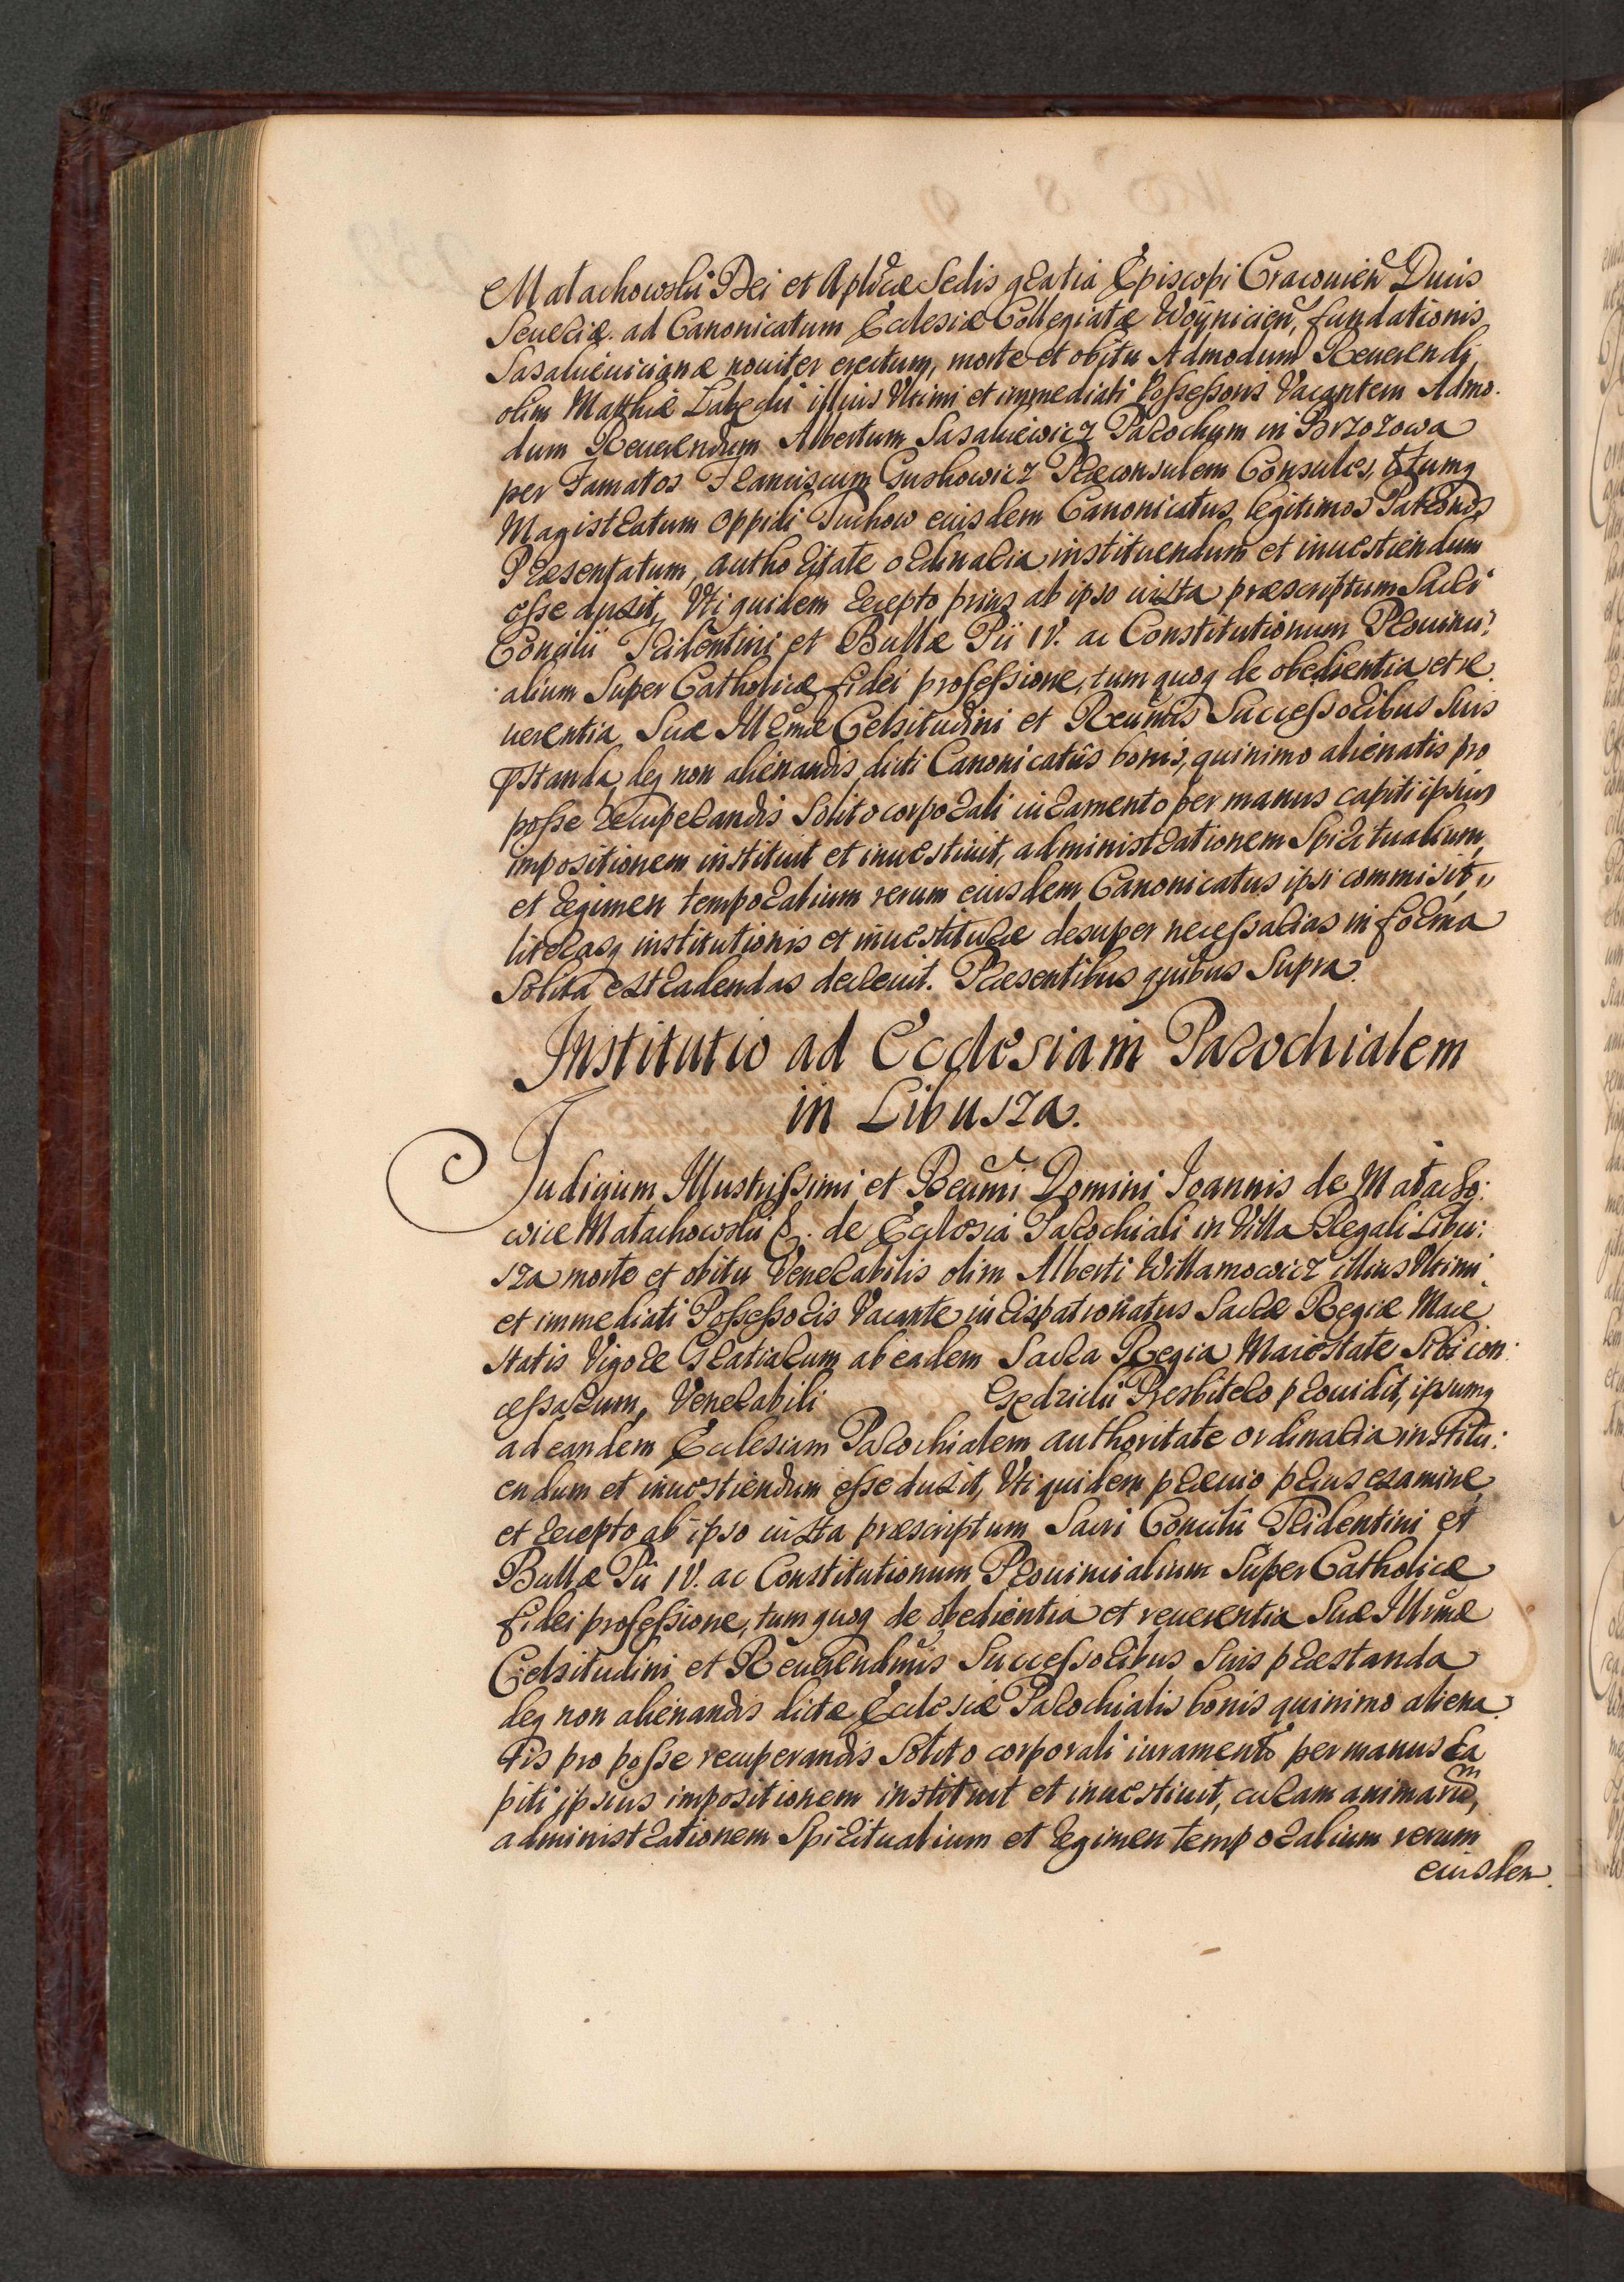 Małachowski Dei et Aplicæ Sedis gratia Episcopi Cracovien Ducis
Severiæ. ad Canonicatum Ecclesiæ Collegiatæ Woÿnicien, fundationis
noviter erectum, morte et obitu Admodum Reverendi
olim Matthiæ illius Ultimi et immediati Possessoris Vacantem Admo.
dum Reverendum Albertum Parochum in Brzozowa
per Famatos Franciscum Proconsulem Consules, totumq
Magistratum Oppidi Tuchow eiusdem Canonicatus legitimos Patronos
Præsentatum, authoritate ordinaria instituendum et inuestiendum
esse duxit, Uti quidem recepto prius ab ipso iuxta præscriptum Sacri
Concilii Tridentini et Bullæ Pii IV. ac Constitutionum Prouinci:
alium Super Catholicæ fidei professione, tum quoq de obedientia et re.
uerentia Suæ Illrmæ Celsitudini et Reumis Successoribus Suis
pstanda, deq non alienandis dicti Canonicatûs bonis, quinimo alienatis pro
posse recuperandis Solito corporali iuramento per manus capiti ipsius
impositionem instituit et inuestiuit, administrationem Spiritualium,
et regimen temporalium rerum eiusdem Canonicatus ipsi commisit,,
literasq institutionis et inuestituræ desuper necessarias in forma
Solita extradendas decreuit. Præsentibus quibus Supra.
Institutio ad Ecclesiam Parochialem
in Libusza.
Judicium Illustrissimi et Reumi Domini Ioannis de Małacho:
wice Małachowski &. de Ecclesia Parochiali in Villa Regali Libu:
sza morte et obitu Venerabilis olim Alberti Willamowicz illius Ultimi
et immediati Possessoris Vacante iurispatronatus Sacræ Regiæ Maie
statis Vigore Gratiarum ab eadem Sacra Regia Maiestate Sibi con:
cessarum, Venerabili Presbitero prouidit, ipsumq
ad eandem Ecclesiam Parochialem authoritate ordinaria institu:
endum et inuestiendum esse duxit, Uti quidem præuio prius examine,
et recepto ab ipso iuxta præscriptum Sacri Concilii Tridentini et
Bullæ Pii IV. ac Constitutionum Prouincialium Super Catholicæ
fidei professione, tum quoq de obedientia et reuerentia Suæ Illrmæ
Celsitudini et Reuerendmis Successoribus Suis præstanda
deq non alienandis dictæ Ecclesiæ Parochialis bonis quinimo aliena
tis pro posse recuperandis Solito corporali iuramento per manus Ca
piti ipsius impositionem instituit et inuestiuit, curam animarum,
administrationem Spiritualium et regimen temporalium rerum
eiusdem.